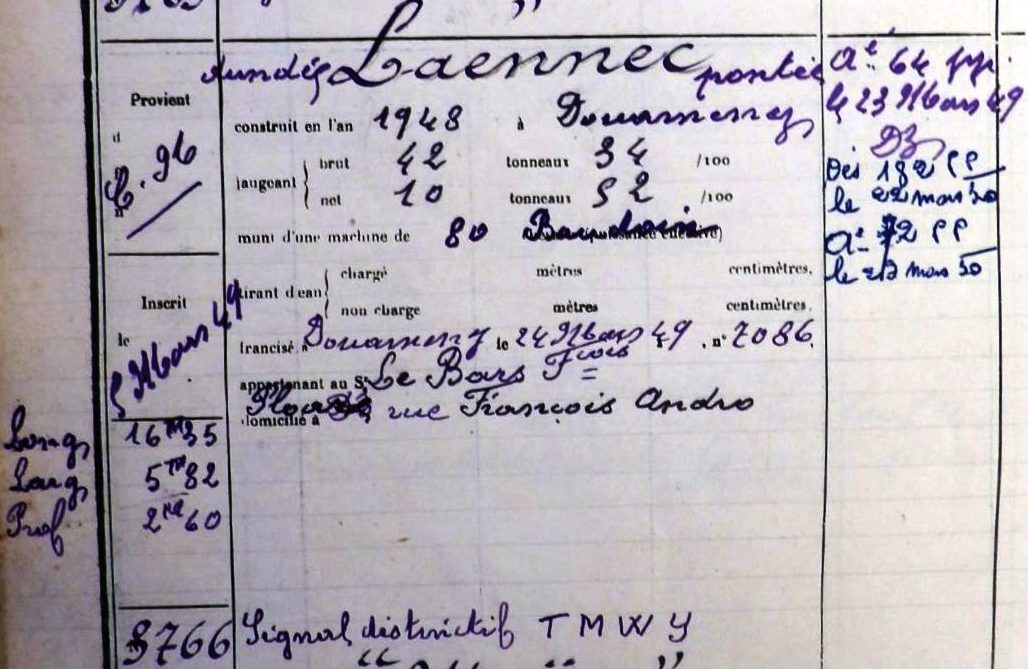 dundée Laennec ponté
Provient
d
C. 96
n°
construit en l'an 1948 à Douarnenez
jaugeant brut 42 tonneaux 34 /100
net 10 tonneaux 52 /100
muni d'une machine de 80 Baudouin
tirant d'eau chargé mètres centimètres.
non chargé mètres centimètres.
Inscrit
le
5 Mars 49
francisé à Douarnenez le 24 Mars 49, n° 7086
appartenant au Sr. Le Bars Fcois
domicilié à Ploaré, rue François Andro
Long 16m35
Larg 5m82
Prof 2m60
3766 Signal distinctif T M W Y
Ae 64
le 23 Mars 49
Dès 182
le 22 mars 50
Ae 72
mars 50